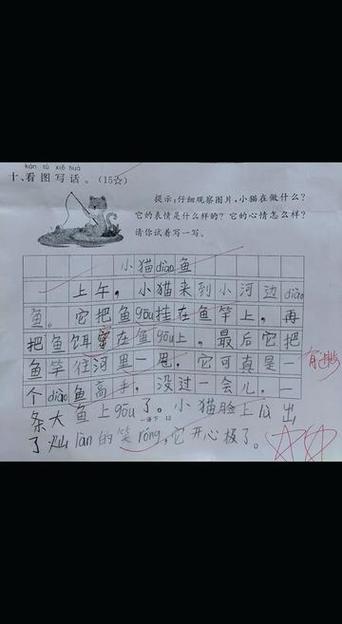 kàn tú xiě huà
十、看图写话。(15☆)
提示:仔细观察图片,小猫在做什么?
它的表情是什么样的?它的心情怎么样?
请你试着写一写。
小猫diào鱼
一上午,小猫来到小河边diào
鱼。它把鱼gōu挂在鱼竿上,再
把鱼饵穿在鱼gōu上。最后它把
鱼竿往河里一甩。它可真是一
个diào鱼高手,没过一会儿,一
条大鱼上gōu了。小猫脸上lù出
了灿làn的笑róng,它开心极了。
有进步